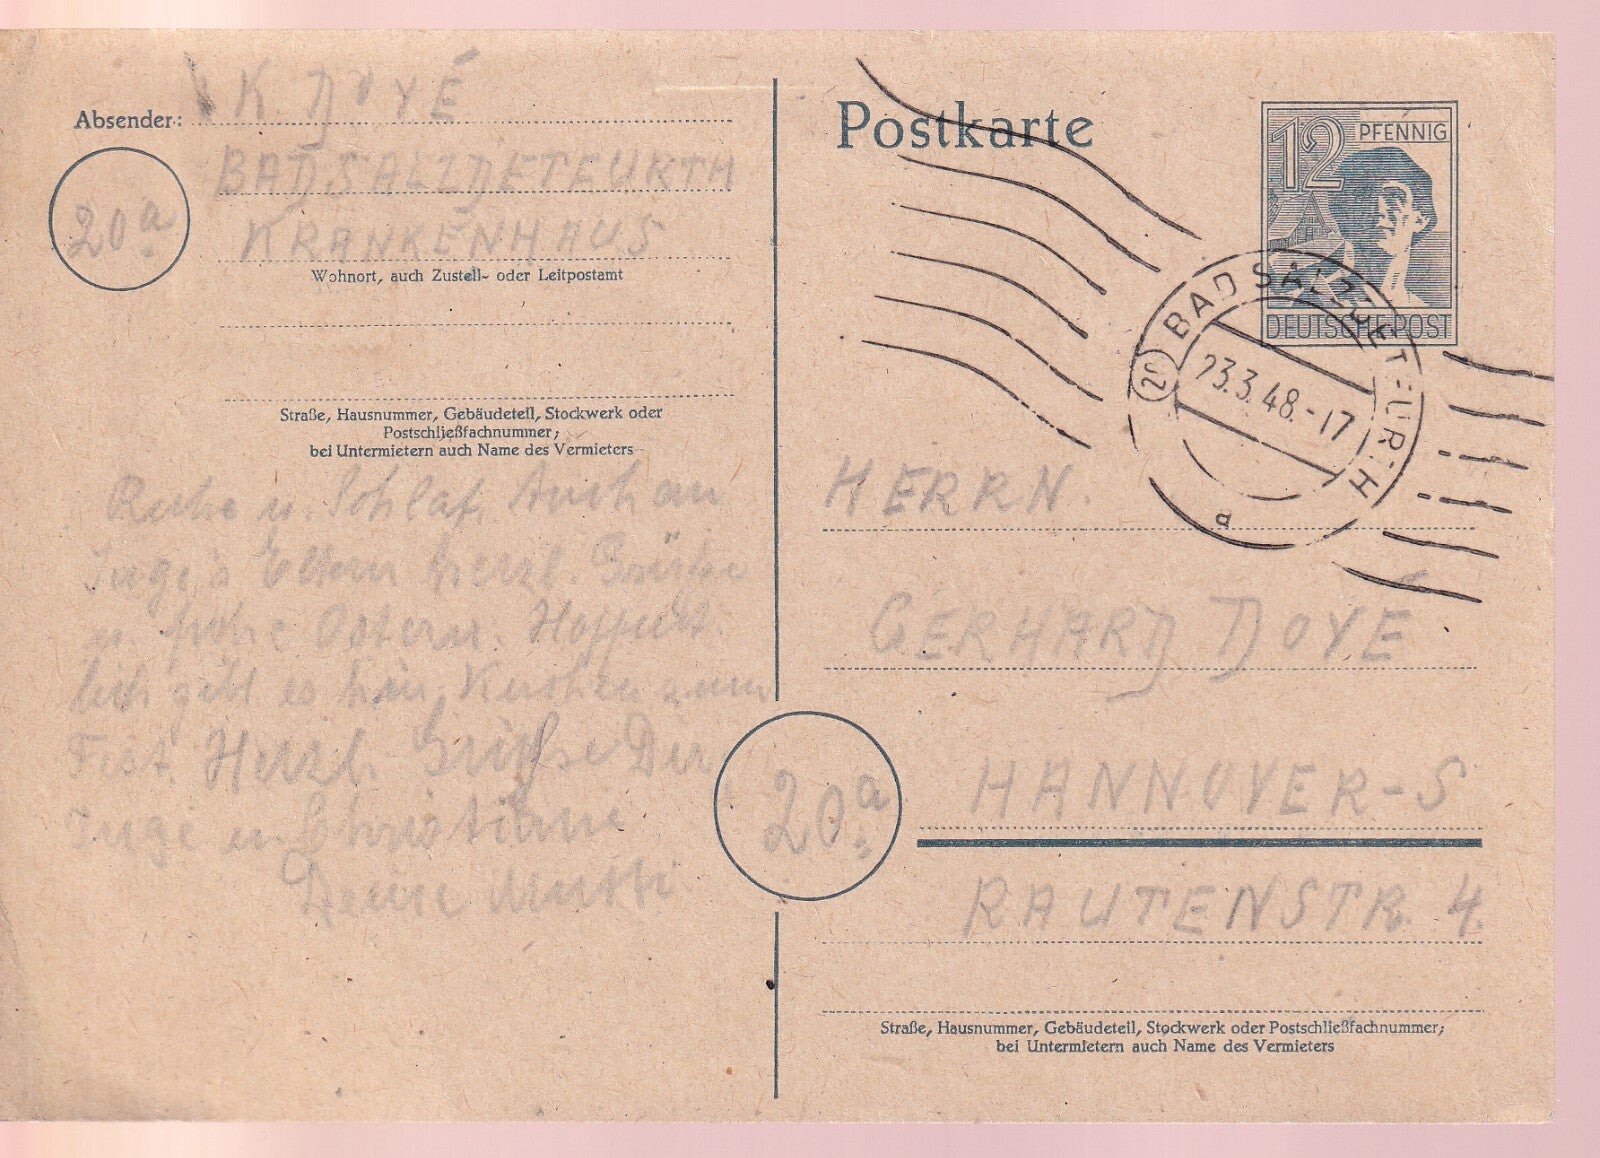 Absender:
K DOYÉ
BAD SALZDETFURTH
KRANKENHAUS
20a
Wohnort, auch Zustell- oder Leitpostamt
Straße, Hausnummer, Gebäudeteil, Stockwerk oder
Postschließfachnummer;
bei Untermietern auch Name des Vermieters
Ruhe u. Schlaf. Auch an
Inge's Eltern herzl. Grüsse
u. frohe Ostern. Hoffent-
lich gibt es hier Kuchen zum
Fest. Herzl. Grüsse Dir,
Inge u Christiane
Deine Mutti
Postkarte
12 PFENNIG
DEUTSCHE POST
(20) BAD SALZDETFURTH
23.3.48.-17
a
HERRN.
GERHARD DOYÉ
20a
HANNOVER-S
RAUTENSTR. 4.
Straße, Hausnummer, Gebäudeteil, Stockwerk oder Postschließfachnummer;
bei Untermietern auch Name des Vermieters